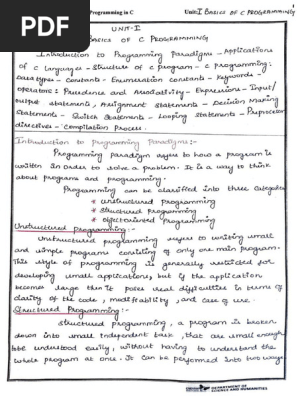 PDF
Programming in C
Unit:I BASICS OF C PROGRAMMING
UNIT-I
BASICS OF C PROGRAMMING
Introduction to Programming Paradigms - Applications
of C Language - Structure of C program - C programming:
Data types - Constants - Enumeration constants - Keywords -
operators: Precedence and Associativity - Expressions - Input/
output statement, Assignment statements - Decision Making
Statements - Switch Statements - Looping Statements - Preprocessor
directives - Compilation Process.
Introduction to programming Paradigms:-
Programming Paradigm refers to how a program is
written in order to solve a problem. It is a way to think
about programs and programming.
Programming can be classified into three Categories
* unstructured programming
* Structured programming
* object oriented Programming
Unstructured programming:-
Unstructured programming refers to writing small
and simple programs consisting of only one main program.
This style of programming is generally restricted for
developing small applications, but if the application
become large then it poses real difficulties in terms of
clarity of the code, modifiability, and ease of use.
Structured Programming:-
structured programming, a program is broken
down into small independent task, that are small enough
be understood easily, without having to understand the
whole program at once. It can be performed into two ways
DEPARTMENT OF
SCIENCE AND HUMANITIES